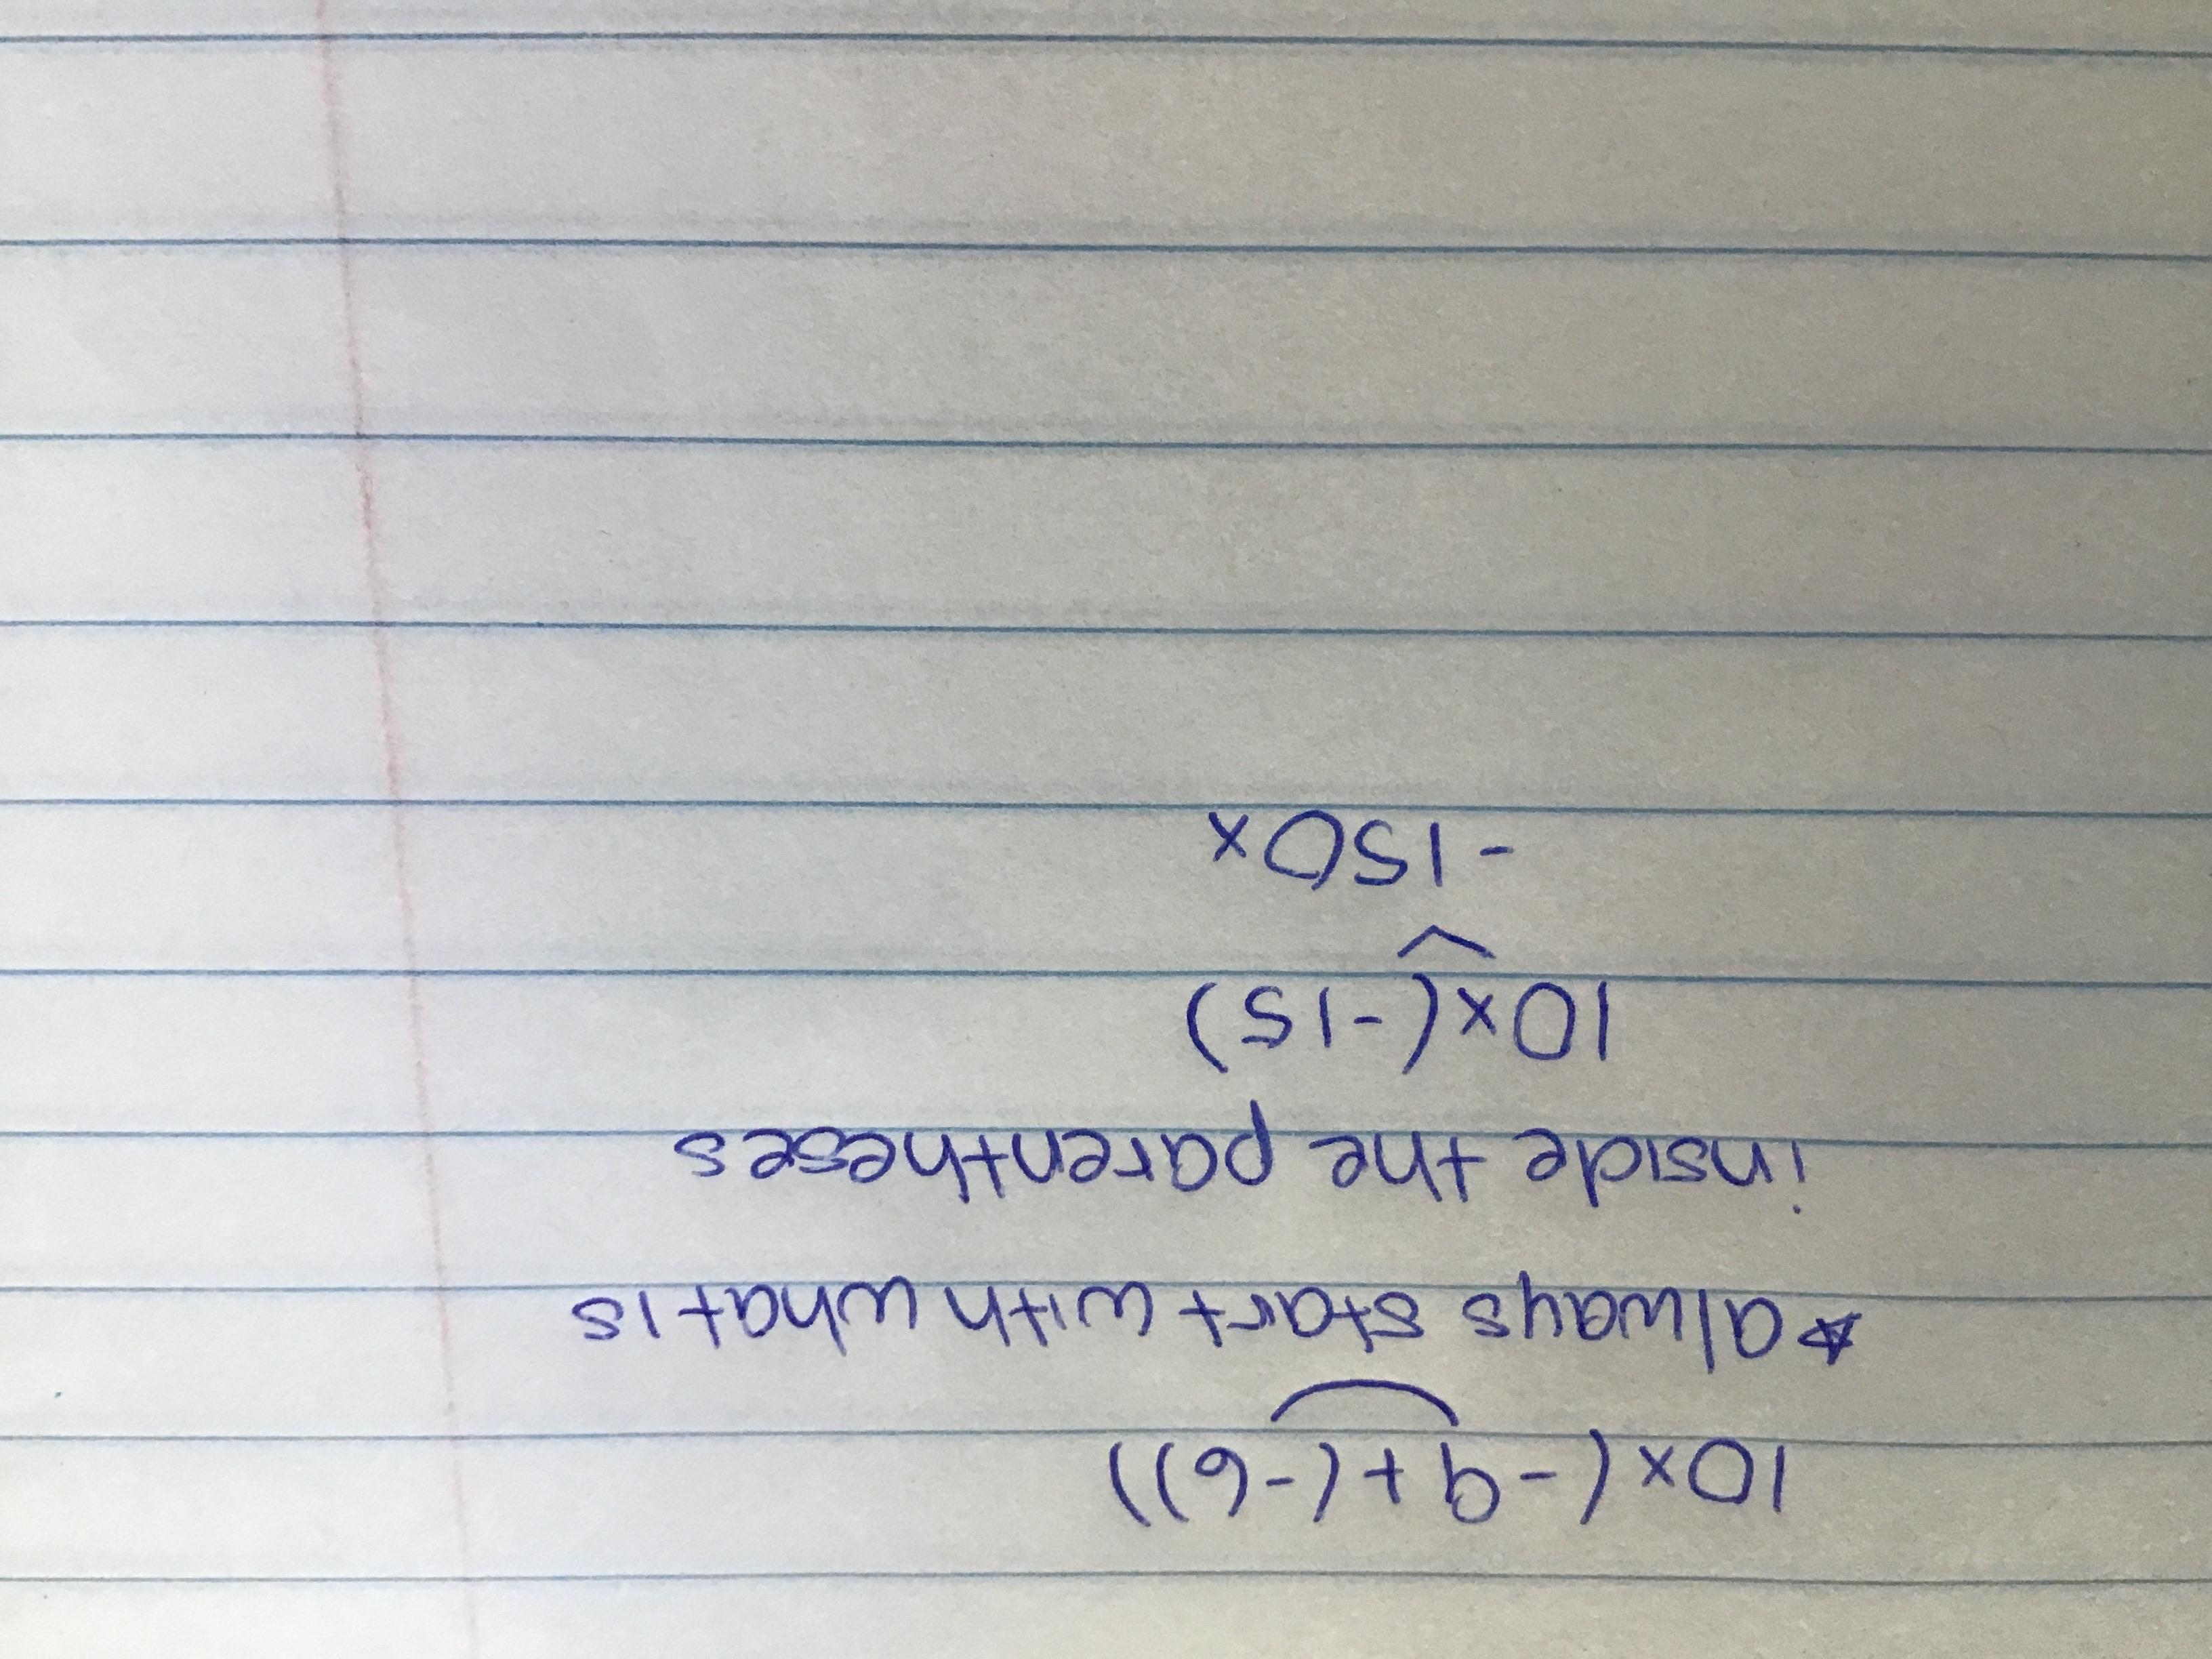 10x(-9+(-6))
☆always start with what is
inside the parentheses
10x(-15)
-150x